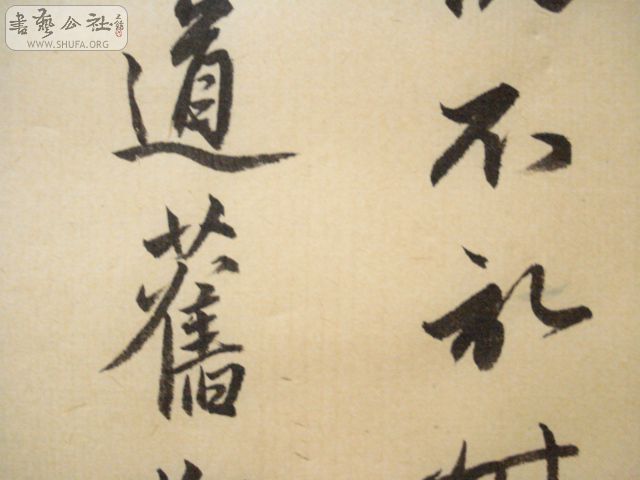 書藝公社
WWW.SHUFA.ORG
不礼
道舊